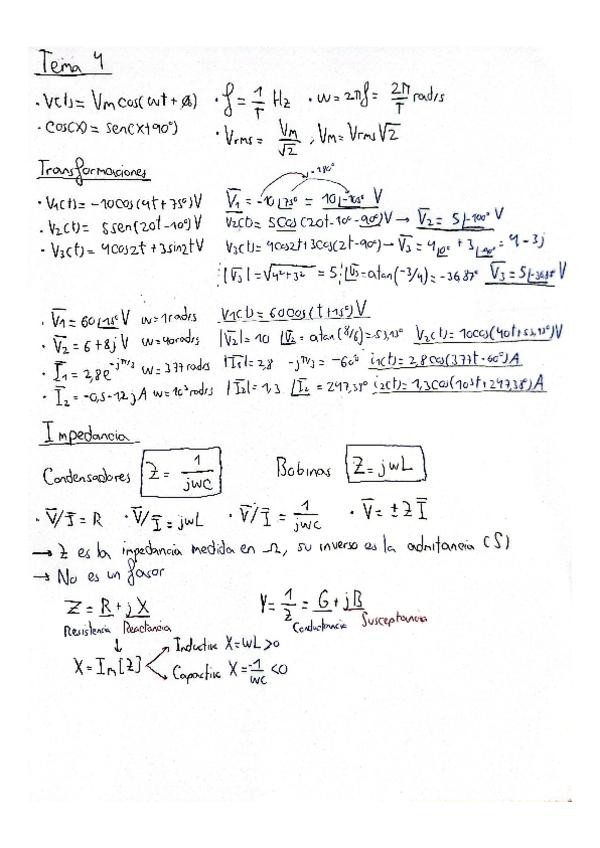 Tema 4
· V(t) = Vm cos(wt + ø) · f = 1/T Hz · w = 2πf = 2π/T rad/s
· cos(x) = sen(x+90°) · Vrms = Vm/√2, Vm = Vrms √2
Transformaciones
+180°
· V1(t) = -10cos(4t+75°)V V̅1 = -10∠75° = 10∠-105° V
· V2(t) = 5sen(20t-10°)V V2(t) = 5cos(20t-10°-90°)V → V̅2 = 5∠-100° V
· V3(t) = 4cos2t+3sin2t V V3(t) = 4cos2t+3cos(2t-90°) → V̅3 = 4∠0° + 3∠-90° = 4-3j
|V̅3| = √4²+3² = 5 ∠V̅3 = atan(-3/4) = -36,87° V̅3 = 5∠-36,87° V
· V̅1 = 60∠15° V w = 1 rad/s V1(t) = 60cos(t+15°)V
· V̅2 = 6+8j V w = 40 rad/s |V̅2| = 10 ∠V̅2 = atan(8/6) = 53,13° V2(t) = 10cos(40t+53,13°)V
· I̅1 = 2,8e^-jπ/3 w = 377 rad/s |I̅1| = 2,8 -jπ/3 = -60° i1(t) = 2,8cos(377t-60°)A
· I̅2 = -0,5-1,2j A w = 10³ rad/s |I̅2| = 1,3 ∠I̅2 = 247,38° i2(t) = 1,3cos(10³t+247,38°)A
Impedancia
Condensadores Z = 1/jwC Bobinas Z = jwL
· V̅/I̅ = R · V̅/I̅ = jwL · V̅/I̅ = 1/jwC · V̅ = ± Z I̅
→ Z es la impedancia medida en Ω, su inverso es la admitancia (S)
→ No es un fasor
Z = R + jX Y = 1/Z = G + jB
Resistencia Reactancia Conductancia Susceptancia
↓
X = Im[Z] Inductiva X = wL > 0
Capacitiva X = -1/wC < 0